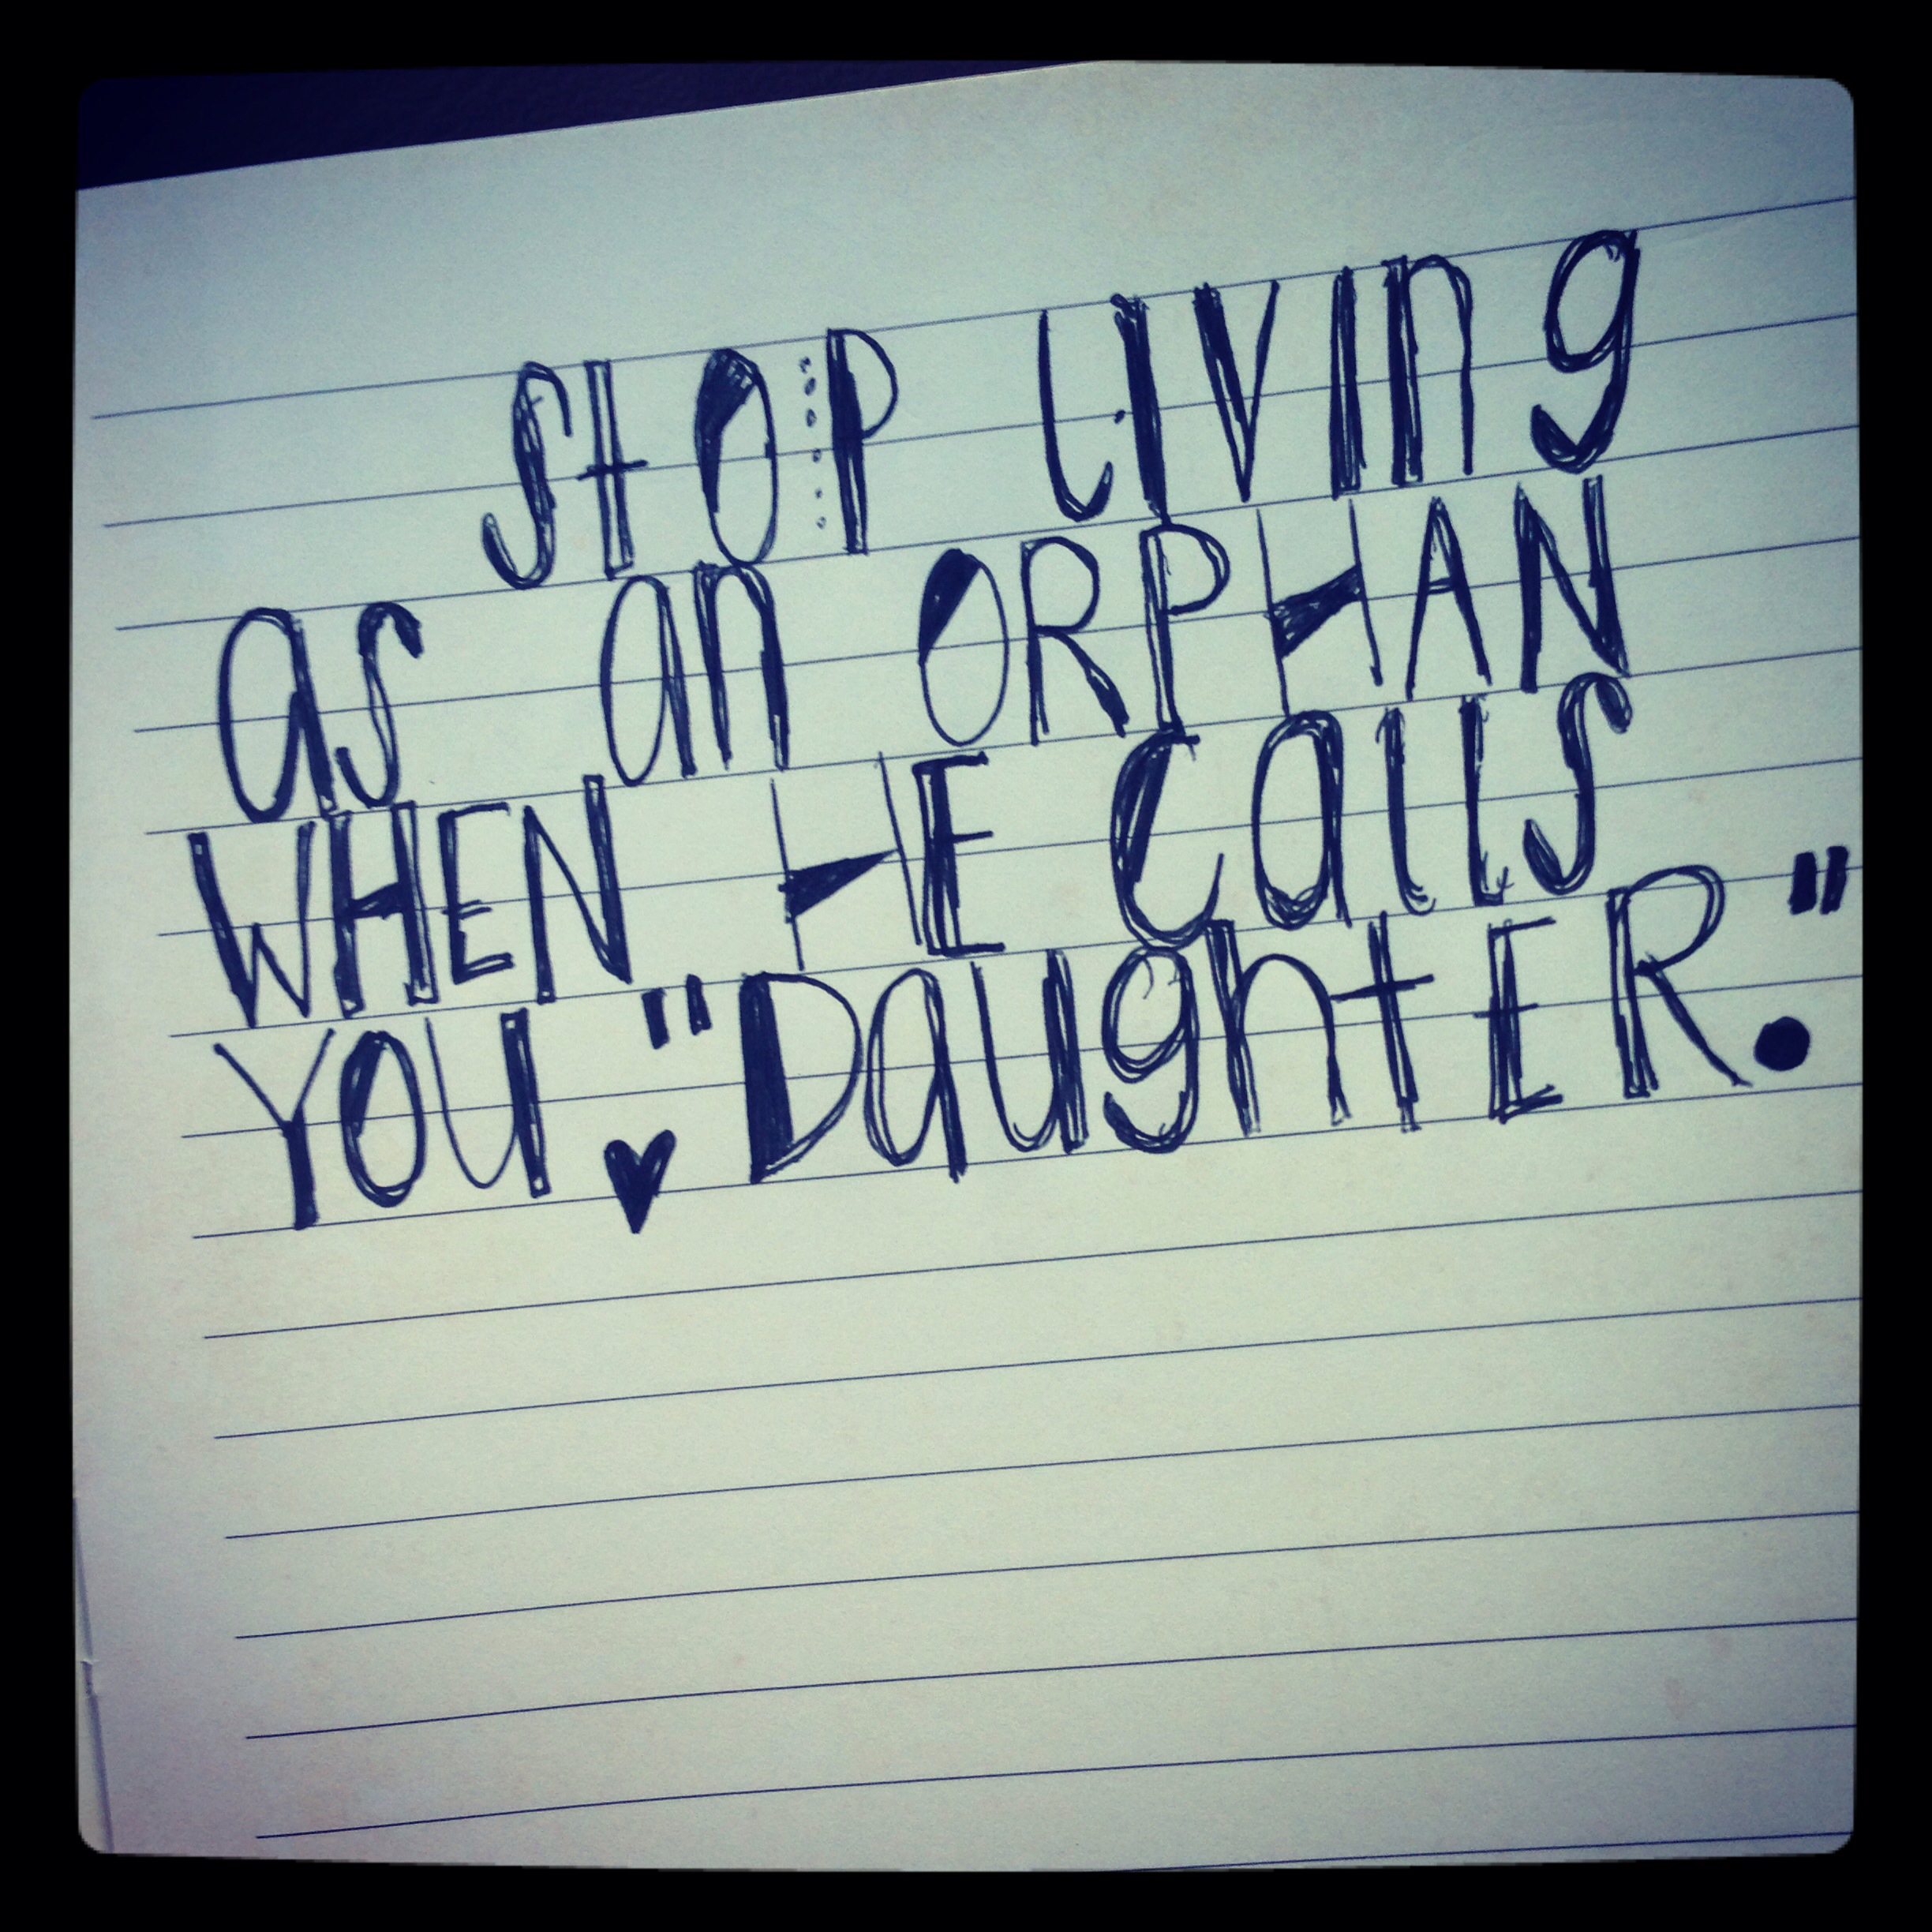 StOP living
as an ORPHAN
WHEN HE calls
YOU "DaughtER."